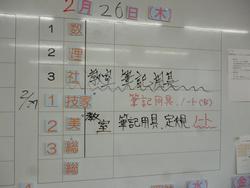 2月26日(木)
1 数
2 理
3 社 教室 筆記用具
2/27
1 技家 筆記用具、ノート(B)
2 美 教室 筆記用具、定規 ノート
3 総
総